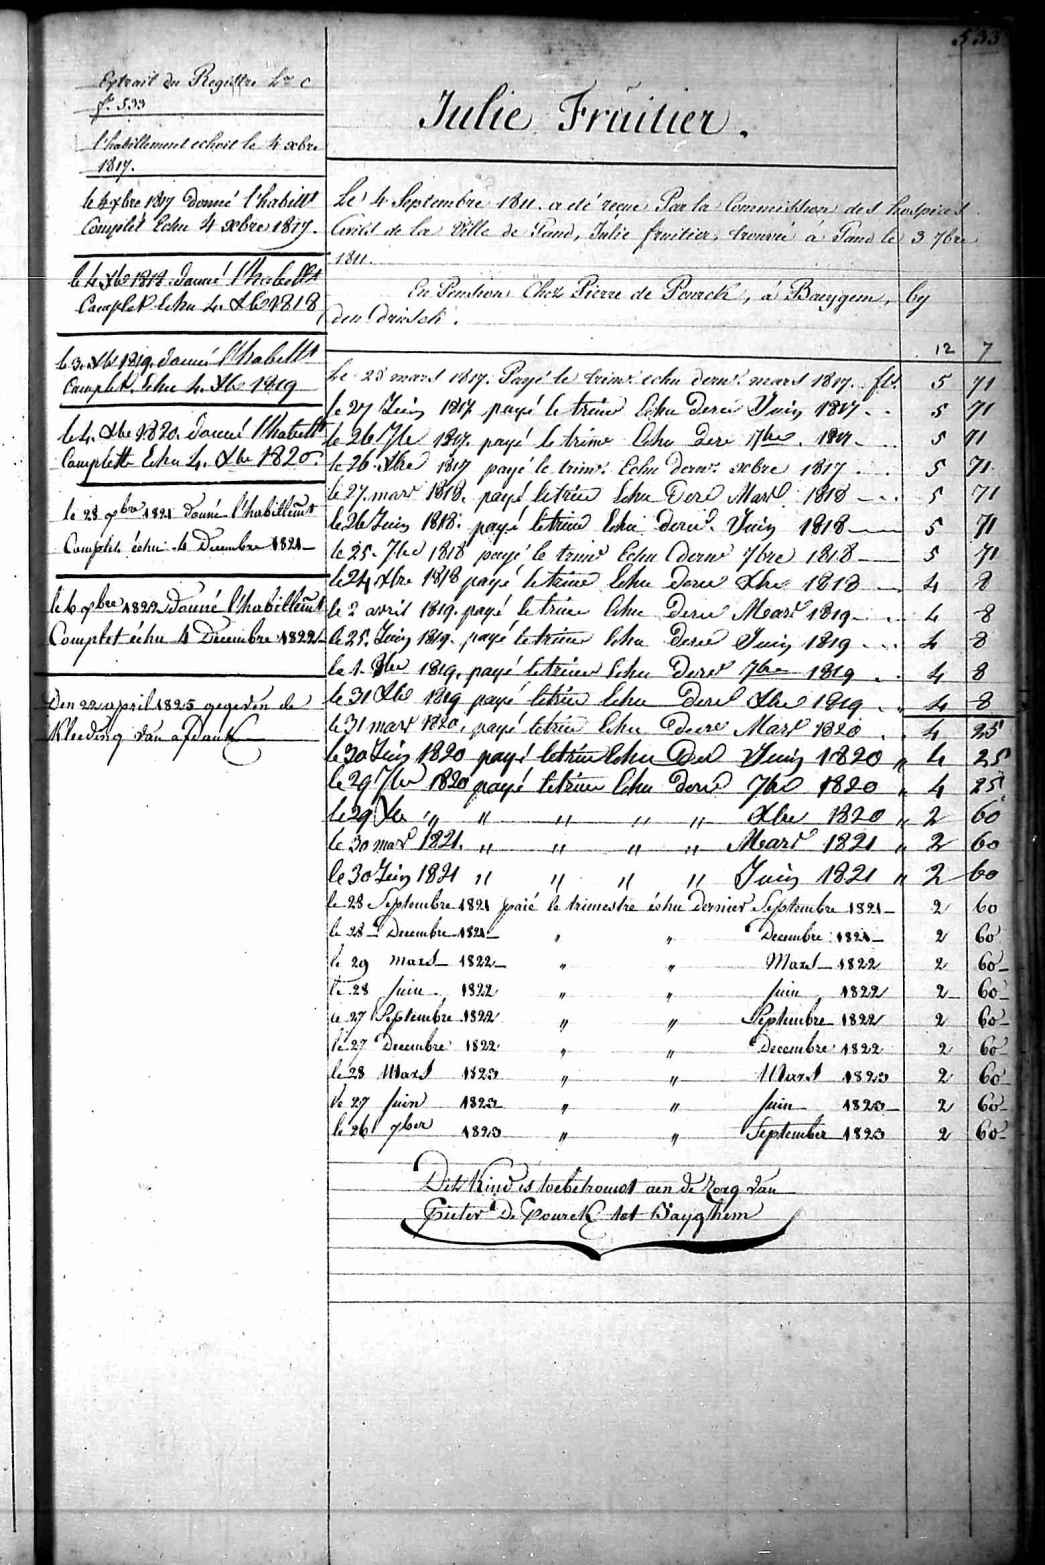 533
Extrait du Registre Lre C
f° 533
l'habillement echoit le 4 xbre
1817.
le 4 xbre 1817 donné l'habillt
Complèt Echu 4 xbre 1817.
le 4 Xbe 1818 donné l'habillt
Complet Echu 4. Xbe 1818
le 3. Xbe 1819. donné l'habillt
Complet Echu 4. Xbe 1819
le 4. Xbe 1820. donné l'habillt
Complett Echu 4. Xbre 1820.
le 28 9bre 1821 donné l'habillemt
Complèt échu 4 Decembre 1821
le 6 9bre 1822 donné l'habillemt
Complet échu 4 Decembre 1822
Den 22 april 1825 gegeven de
Kleeding van afdank
Julie Fruitier.
Le 4 Septembre 1811. a été reçue Par la Commission des hospices
Civils de la Ville de Gand, Julie fruitier, trouvée à Gand le 3 7bre
1811.
En Pension Chez Pierre de Pourck, à Baeygem, by
den Driesch.
12 7
Le 28 mars 1817. Payé le trimr. echu dernr. mars 1817. fls. 5 71
le 27 Juin 1817 payé le trime Echu derer Juin 1817 . . 5 71
le 26 7bre 1817. payé le trime Echu dere 7bre. 1817. 5 71
le 26. Xbre 1817 payé le trimr. Echu dernr. xbre 1817 5 71
le 27. mars 1818. payé letrim Echu dere Mars 1818 5 71
le 26 Juin 1818. payé letrim Echu derer. Juin 1818 5 71
le 25. 7bre 1818 payé le trimr Echu dernr 7bre 1818 5 71
le 24 Xbre 1818 payé letrim Echu derer Xbre 1818 4 8
le 2 avril 1819. payé le trim Echu derer Mars 1819 4 8
le 25. Juin 1819. payé letrim Echu derer Juin 1819 4 8
le 1. 8bre 1819. payé letrim Echu derer 7bre 1819 4 8
le 31 Xbe 1819 payé letrim Echu derer Xbre 1819 4 8
le 31 mars 1820. payé letrim Echu derer Mars 1820 4 25
le 30 Juin 1820 payé letrim Echu Der Juin 1820 " 4 25
le 29 7bre 1820 payé letrim Echu derer 7bre 1820 " 4 25
le 29 Xbe " " " " " Xbre 1820 " 2 60
le 30 mars 1821. " " " " Mars 1821 " 2 60
le 30 Juin 1821 " " " " Juin 1821 " 2 60
le 28 Septembre 1821 paié le trimestre échu dernier Septembre 1821 2 60
le 28 Decembre 1821 " " Decembre 1821 2 60
le 29 mars 1822 " " Mars 1822 2 60
le 28 Juin 1822 " " Juin 1822 2 60
le 27 Septembre 1822 " " Septembre 1822 2 60
le 27 Decembre 1822 " " Decembre 1822 2 60
le 28 Mars 1823 " " Mars 1823 2 60
le 27 Juin 1823 " " Juin 1823 2 60
le 26 7ber 1823 " " September 1823 2 60
Dit Kind is toebetrouwt aen de zorg van
Pieter De Pourck tot Bayghem